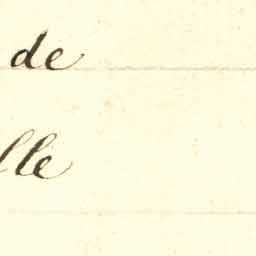 de
lle